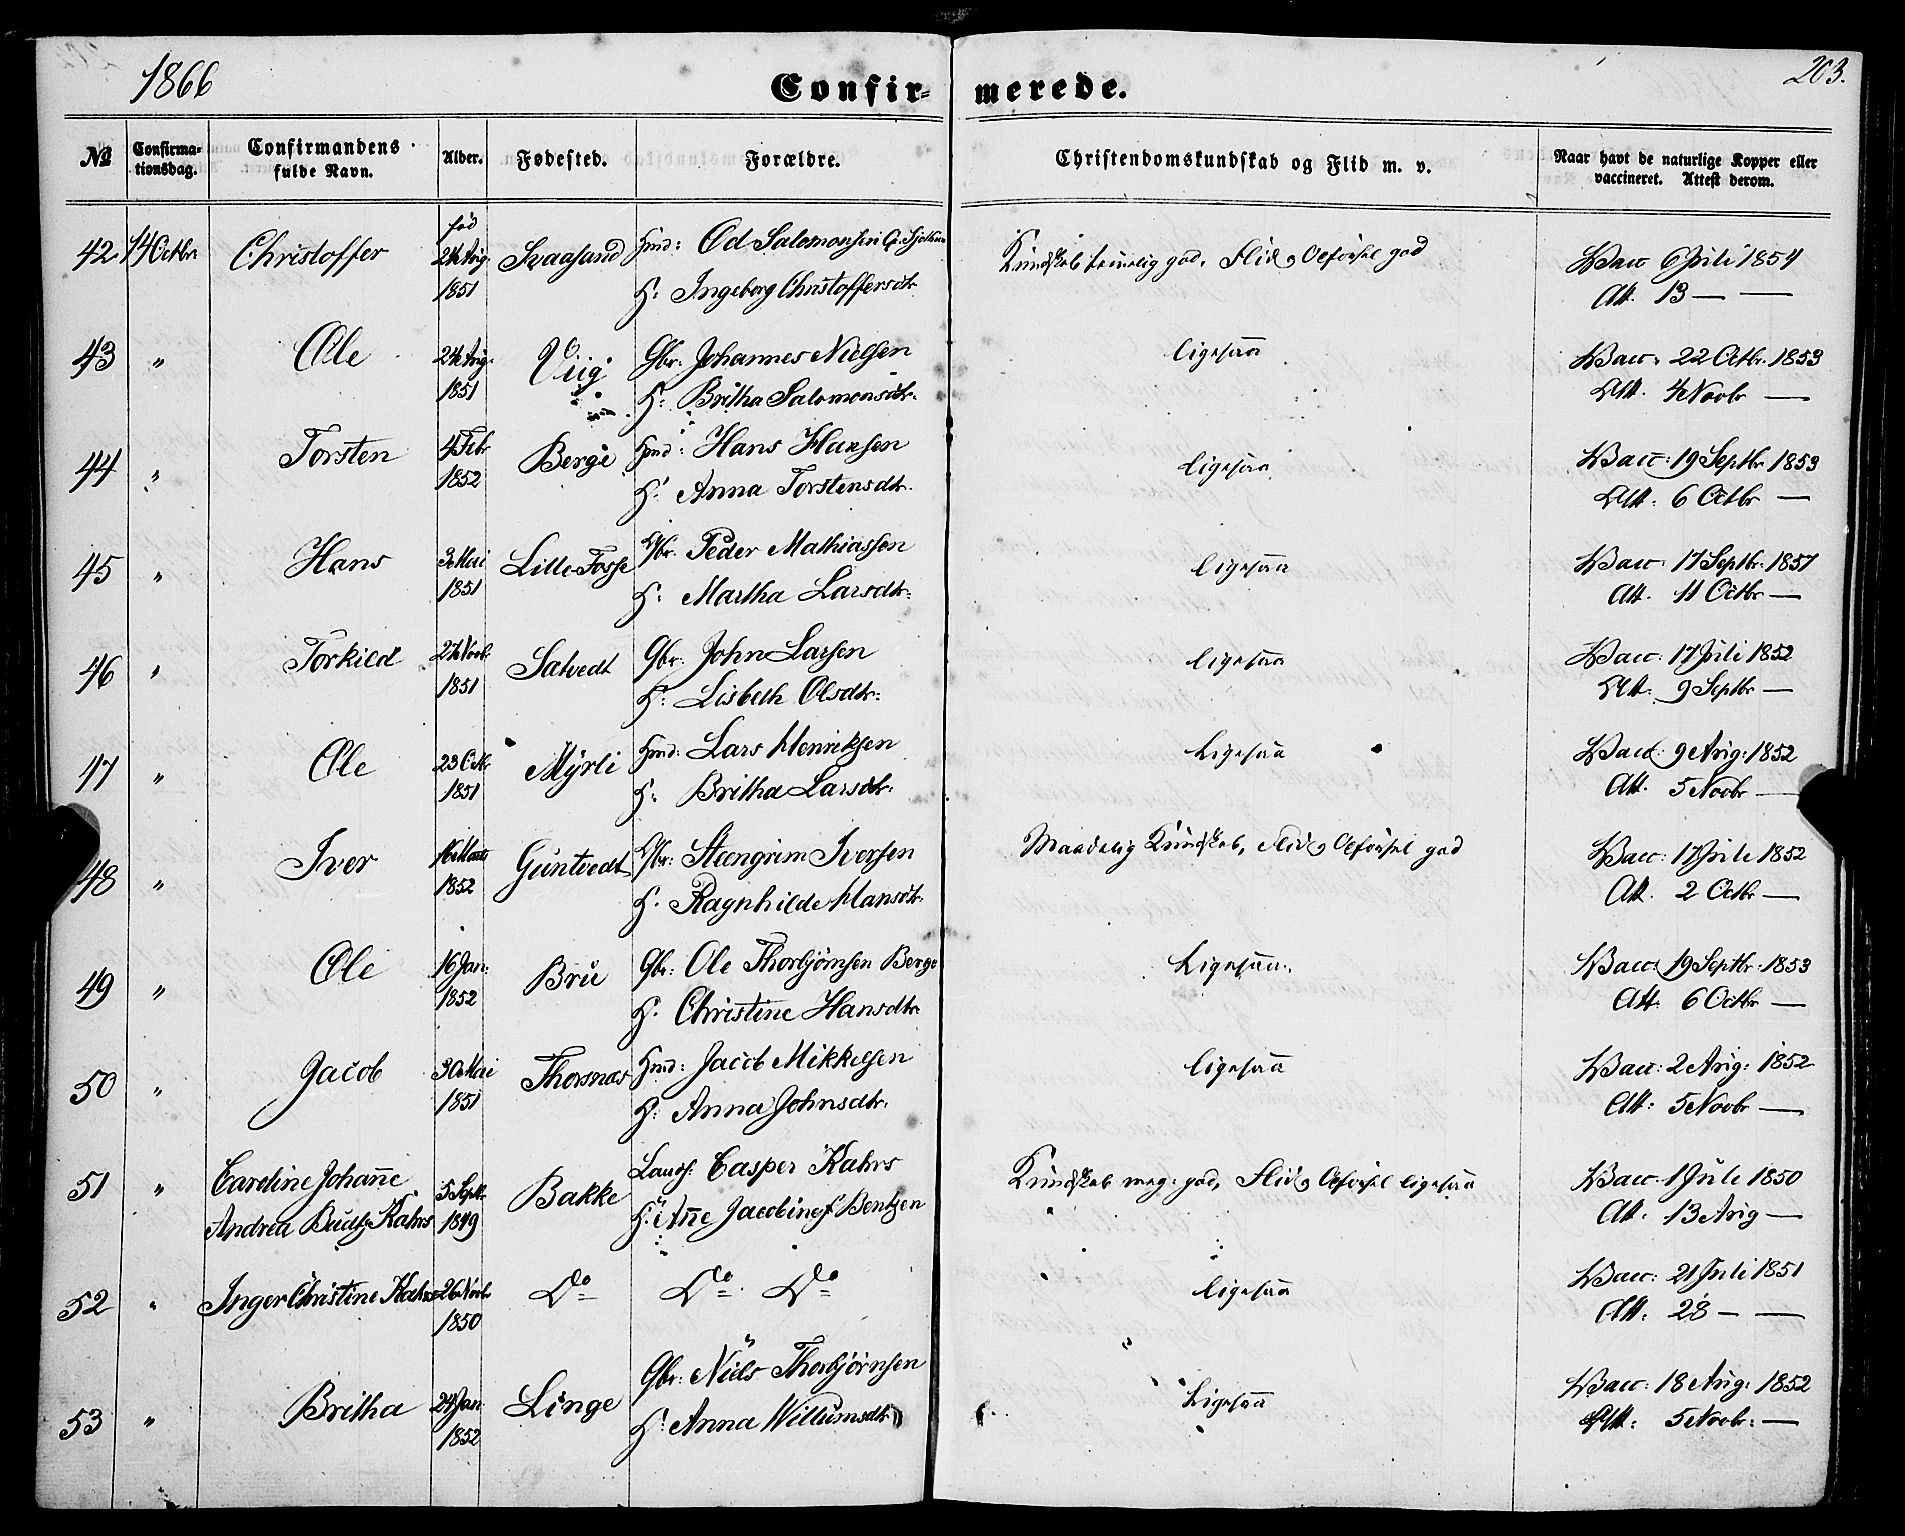 1866
Confir-
merede.
203.
№
Confirma-
tionsdag.
Confirmandens
fulde Navn.
Alder.
Fødested.
Forældre.
Christendomskundskab og Flid m. v.
Naar havt de naturlige Kopper eller
vaccineret. Attest derom.
42 14 Octbr Christoffer Svaasand Hmd: Od Salomonsen
fød
24 Aug
1851
H: Ingeborg Christoffersdtr
Kundskab temmelig god, Flid og Opførsel god
Vacc 6 Juli 1854
Att. 13 — —
43 " Ole 24 Aug 1851 Viig Gbr: Johannes Nielsen
H: Britha Salomonsdtr.
ligesaa
Vacc. 22 Octbr. 1853
Att. 4 Novbr —
44 " Torsten 4 Febr 1852 Berge Hmd: Hans Hansen
H: Anna Torstensdtr.
ligesaa
Vacc: 19 Septbr 1853
Att: 6 Octbr —
45 " Hans 3 Mai 1851 Lille Fosse Gbr. Peder Mathiassen
H: Martha Larsdtr.
ligesaa
Vacc: 17 Septbr: 1851
Att. 11 Octbr —
46 " Torkild 27 Novb. 1851 Salvedt Gbr. John Larsen
H: Lisbeth Olsdtr.
ligesaa
Vacc: 17 Juli 1852
Att. 9 Septbr —
47 " Ole 23 Octbr 1851 Myrli Hmd: Lars Henriksen
H. Britha Larsdtr.
Ligesaa
Vacc: 9 Aug: 1852
Att. 5 Novbr —
48 " Iver 16 Marts 1852 Guntvedt Gbr: Steengrim Iversen
H. Ragnhilde Hansdtr.
Maadelig Kundskab, Flid og Opførsel god
Vacc: 17 Juli 1852
Att. 2 Octbr —
49 " Ole 16 Jan: 1852 Bru Gbr: Ole Thorbjørnsen Berge
H. Christine Hansdtr.
Ligesaa.
Vacc: 19 Septbr: 1853
Att: 6 Octbr —
50 " Jacob 30 Mai 1851 Thorsnæs Hmd: Jacob Mikkelsen
H: Anna Johnsdtr.
ligesaa
Vacc: 2 Aug: 1852
Att: 5 Novbr —
51 " Caroline Johanne 5 Septb. 1849 Bakke Landh: Casper Kahrs
Andrea Kahrs
H: Anne Jacobine f Bentzen
Kundskab meg. god, Flid og Opførsel ligesaa
Vacc. 1 Juli 1850
Att. 13 Aug —
52 " Inger Christine Kahrs 26 Novbr 1850 Do Do Do
ligesaa
Vacc: 21 Juli 1851
Att: 28 — —
53 " Britha 24 Jan 1852 Linge Gbr: Niels Thorbjørnsen
H: Anna Willumsdtr
Ligesaa
Vacc: 18 Aug: 1852
Att: 5 Novbr: —